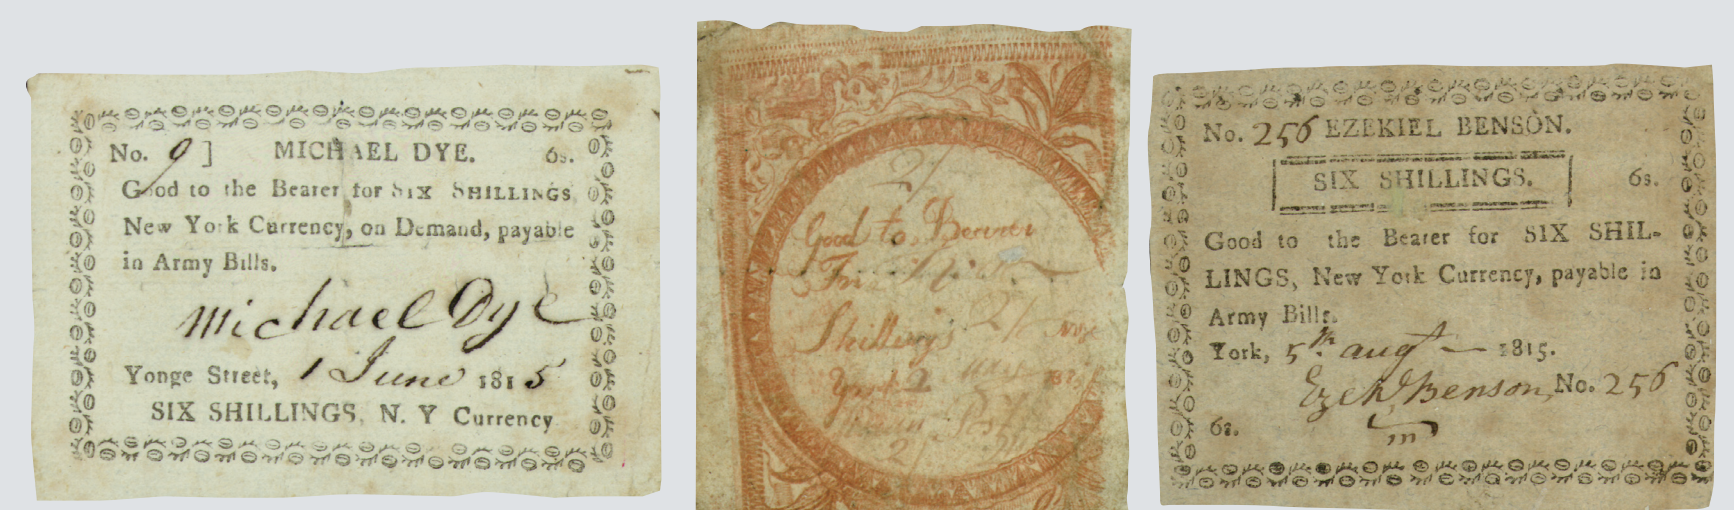 No. 9] MICHAEL DYE. 6s.
Good to the Bearer for SIX SHILLINGS,
New York Currency, on Demand, payable
in Army Bills.
Michael Dye
Yonge Street, 1 June 1815
SIX SHILLINGS, N. Y Currency
2/
Good to Bearer
Shillings
York
No. 256 EZEKIEL BENSON.
SIX SHILLINGS. 6s.
Good to the Bearer for SIX SHIL-
LINGS, New York Currency, payable in
Army Bills.
York, 5th augt 1815.
Ezekl Benson, No. 256
6s.